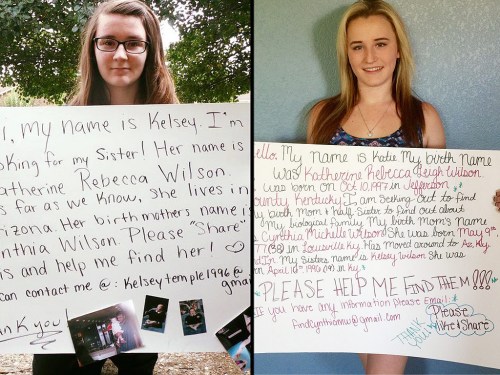 I, my name is Kelsey. I'm
oking for my Sister! Her name is
atherine Rebecca Wilson.
s far as we know, she lives in
rizona. Her birth mothers name is
nthia Wilson. Please "Share"
is and help me find her! ♡
can contact me @: Kelseytemple1996@
gmai
ank you!
Hello, My name is Katie My birth Name
was Katherine Rebecca Leigh Wilson
was born on Oct. 10, 1997 in Jefferson
County Kentucky. I am Seeking Out to find
my birth Mom & Half Sister to find out about
My biological family. My birth Mom's Name
is Cynthia Michelle Wilson She was born May 9th,
(38) in Louisville Ky. Has Moved around to Az, Ky
and In. My Sisters name is Kelsey Wilson She was
born April 16th, 1996 (19) in Ky.
PLEASE HELP ME FIND THEM!!!
If you have any information Please Email:
findcynthiamw@gmail.com
THANK YOU!
Please
like & Share